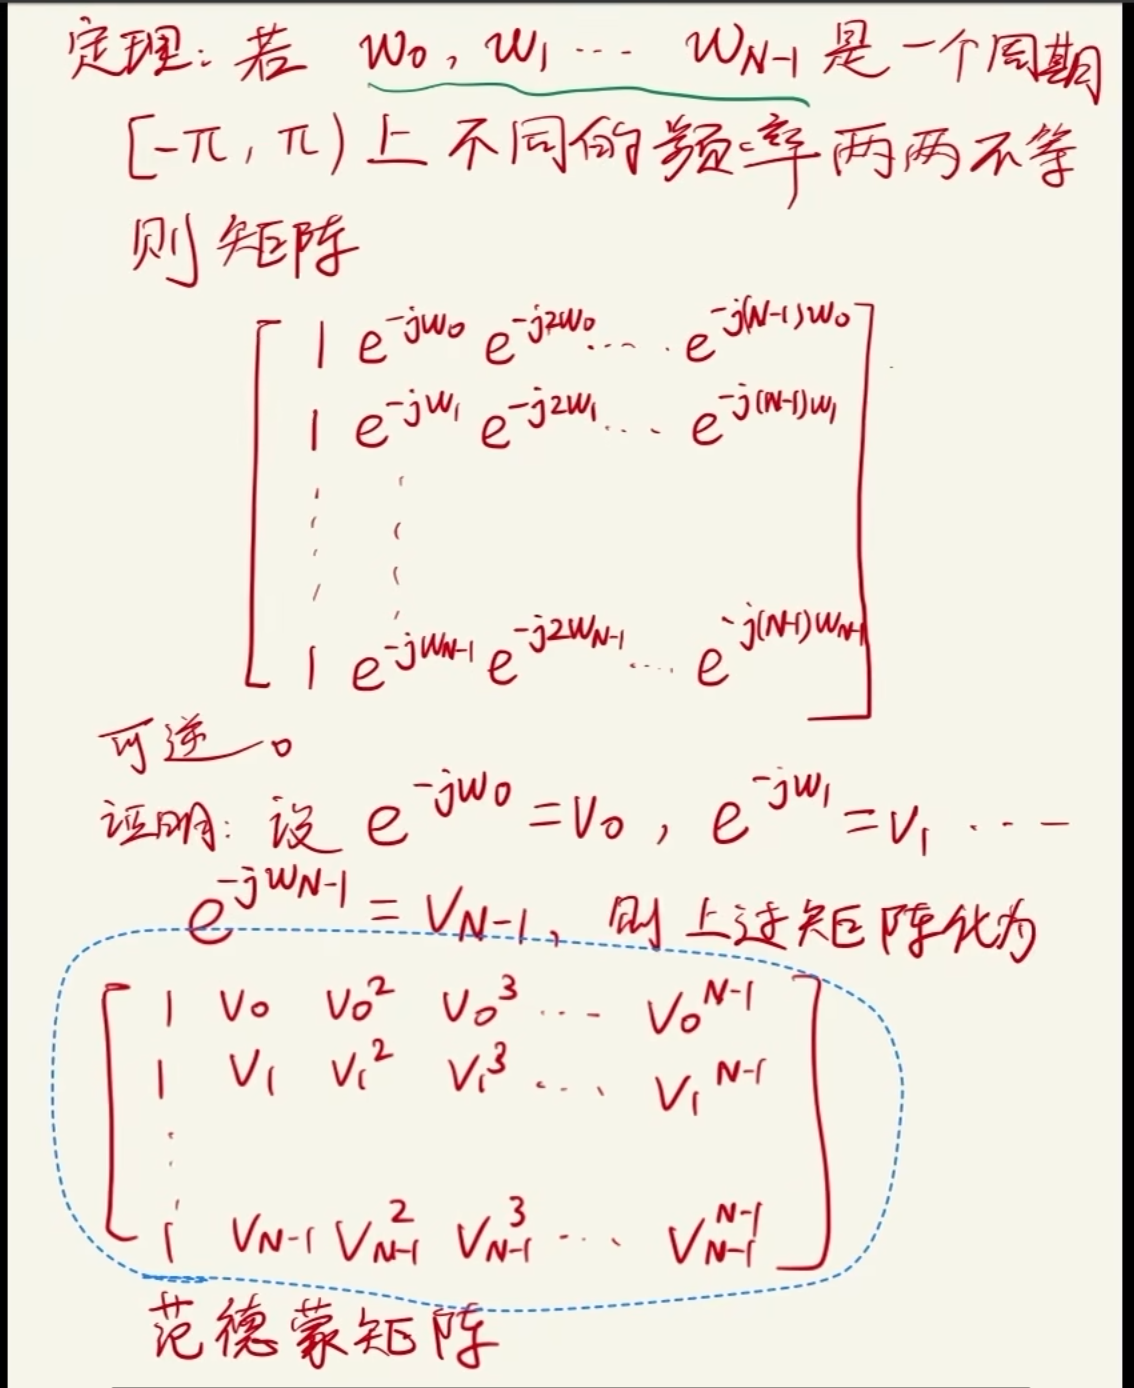 定理：若 w₀, w₁ ... w_{N-1} 是一个周期
[-π, π) 上不同的频率两两不等
则矩阵
[ 1 e^{-jw₀} e^{-j2w₀} ... e^{-j(N-1)w₀} ]
1 e^{-jw₁} e^{-j2w₁} ... e^{-j(N-1)w₁}
1 e^{-jw_{N-1}} e^{-j2w_{N-1}} ... e^{-j(N-1)w_{N-1}} ]
可逆。
证明：设 e^{-jw₀} = v₀, e^{-jw₁} = v₁ ...
e^{-jw_{N-1}} = v_{N-1}, 则上述矩阵化为
[ 1 v₀ v₀² v₀³ ... v₀^{N-1} ]
1 v₁ v₁² v₁³ ... v₁^{N-1}
1 v_{N-1} v_{N-1}² v_{N-1}³ ... v_{N-1}^{N-1} ]
范德蒙矩阵